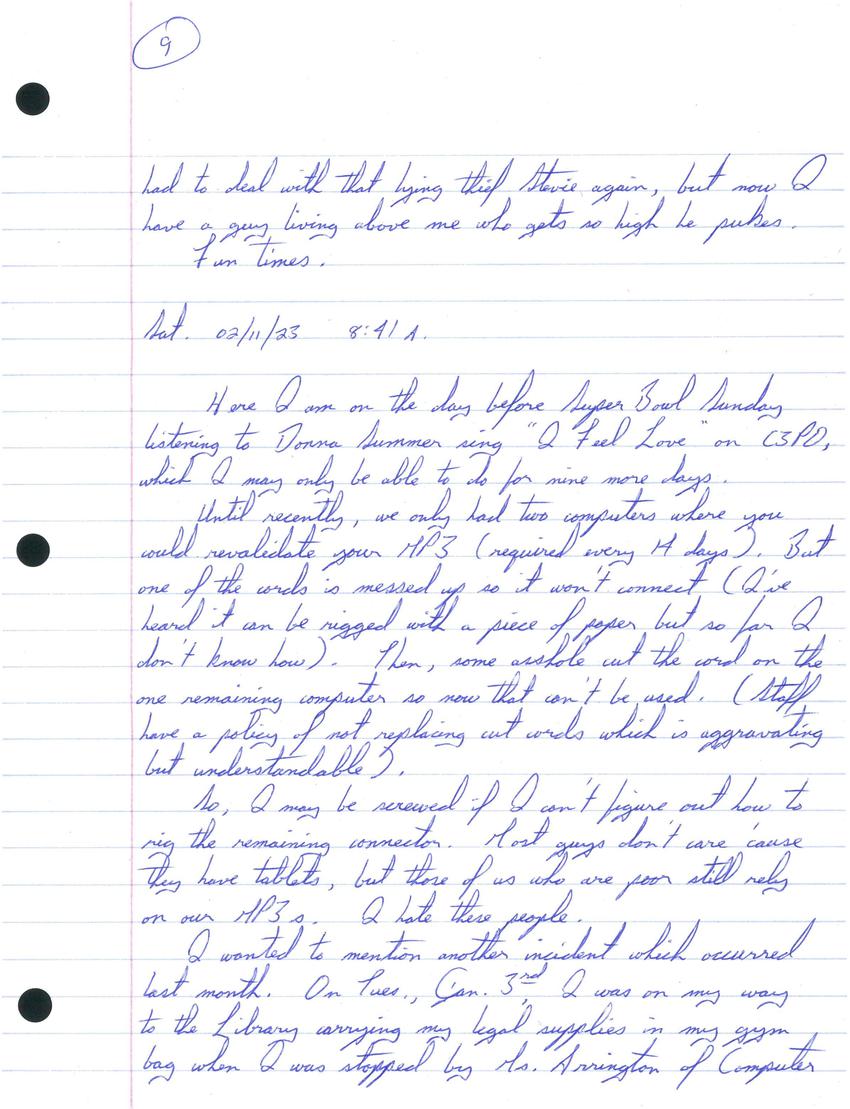 9
had to deal with that lying thief Stevie again, but now I
have a guy living above me who gets so high he pukes.
Fun times.
Sat. 02/11/23 8:41 A.
Here I am on the day before Super Bowl Sunday
listening to Donna Summer sing "I Feel Love" on C3PO,
which I may only be able to do for nine more days.
Until recently, we only had two computers where you
could revalidate your MP3 (required every 14 days). But
one of the cords is messed up so it won't connect (I've
heard it can be rigged with a piece of paper but so far I
don't know how). Then, some asshole cut the cord on the
one remaining computer so now that can't be used. (Staff
have a policy of not replacing cut cords which is aggravating
but understandable).
So, I may be screwed if I can't figure out how to
rig the remaining connector. Most guys don't care 'cause
they have tablets, but those of us who are poor still rely
on our MP3s. I hate these people.
I wanted to mention another incident which occurred
last month. On Tues., Jan. 3rd, I was on my way
to the Library carrying my legal supplies in my gym
bag when I was stopped by Ms. Arrington of Computer